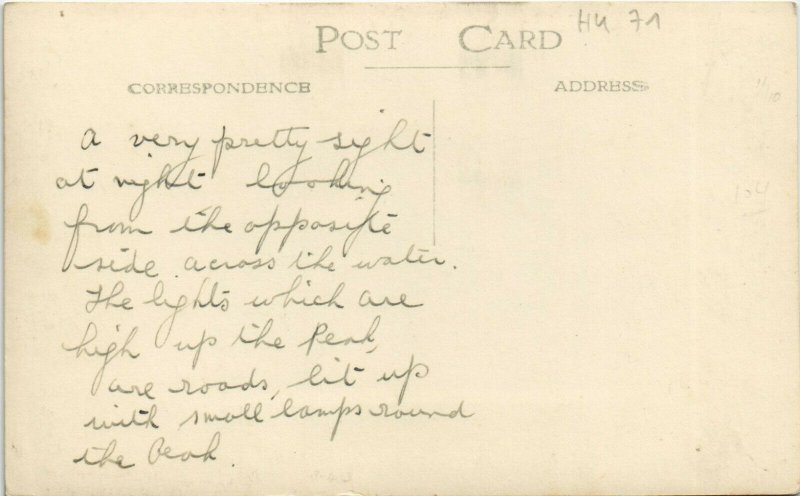 POST CARD
HK 71
CORRESPONDENCE
ADDRESS
A very pretty sight
at night looking
from the opposite
side across the water.
The lights which are
high up the Peak,
are roads, lit up
with small lamps round
the Peak.